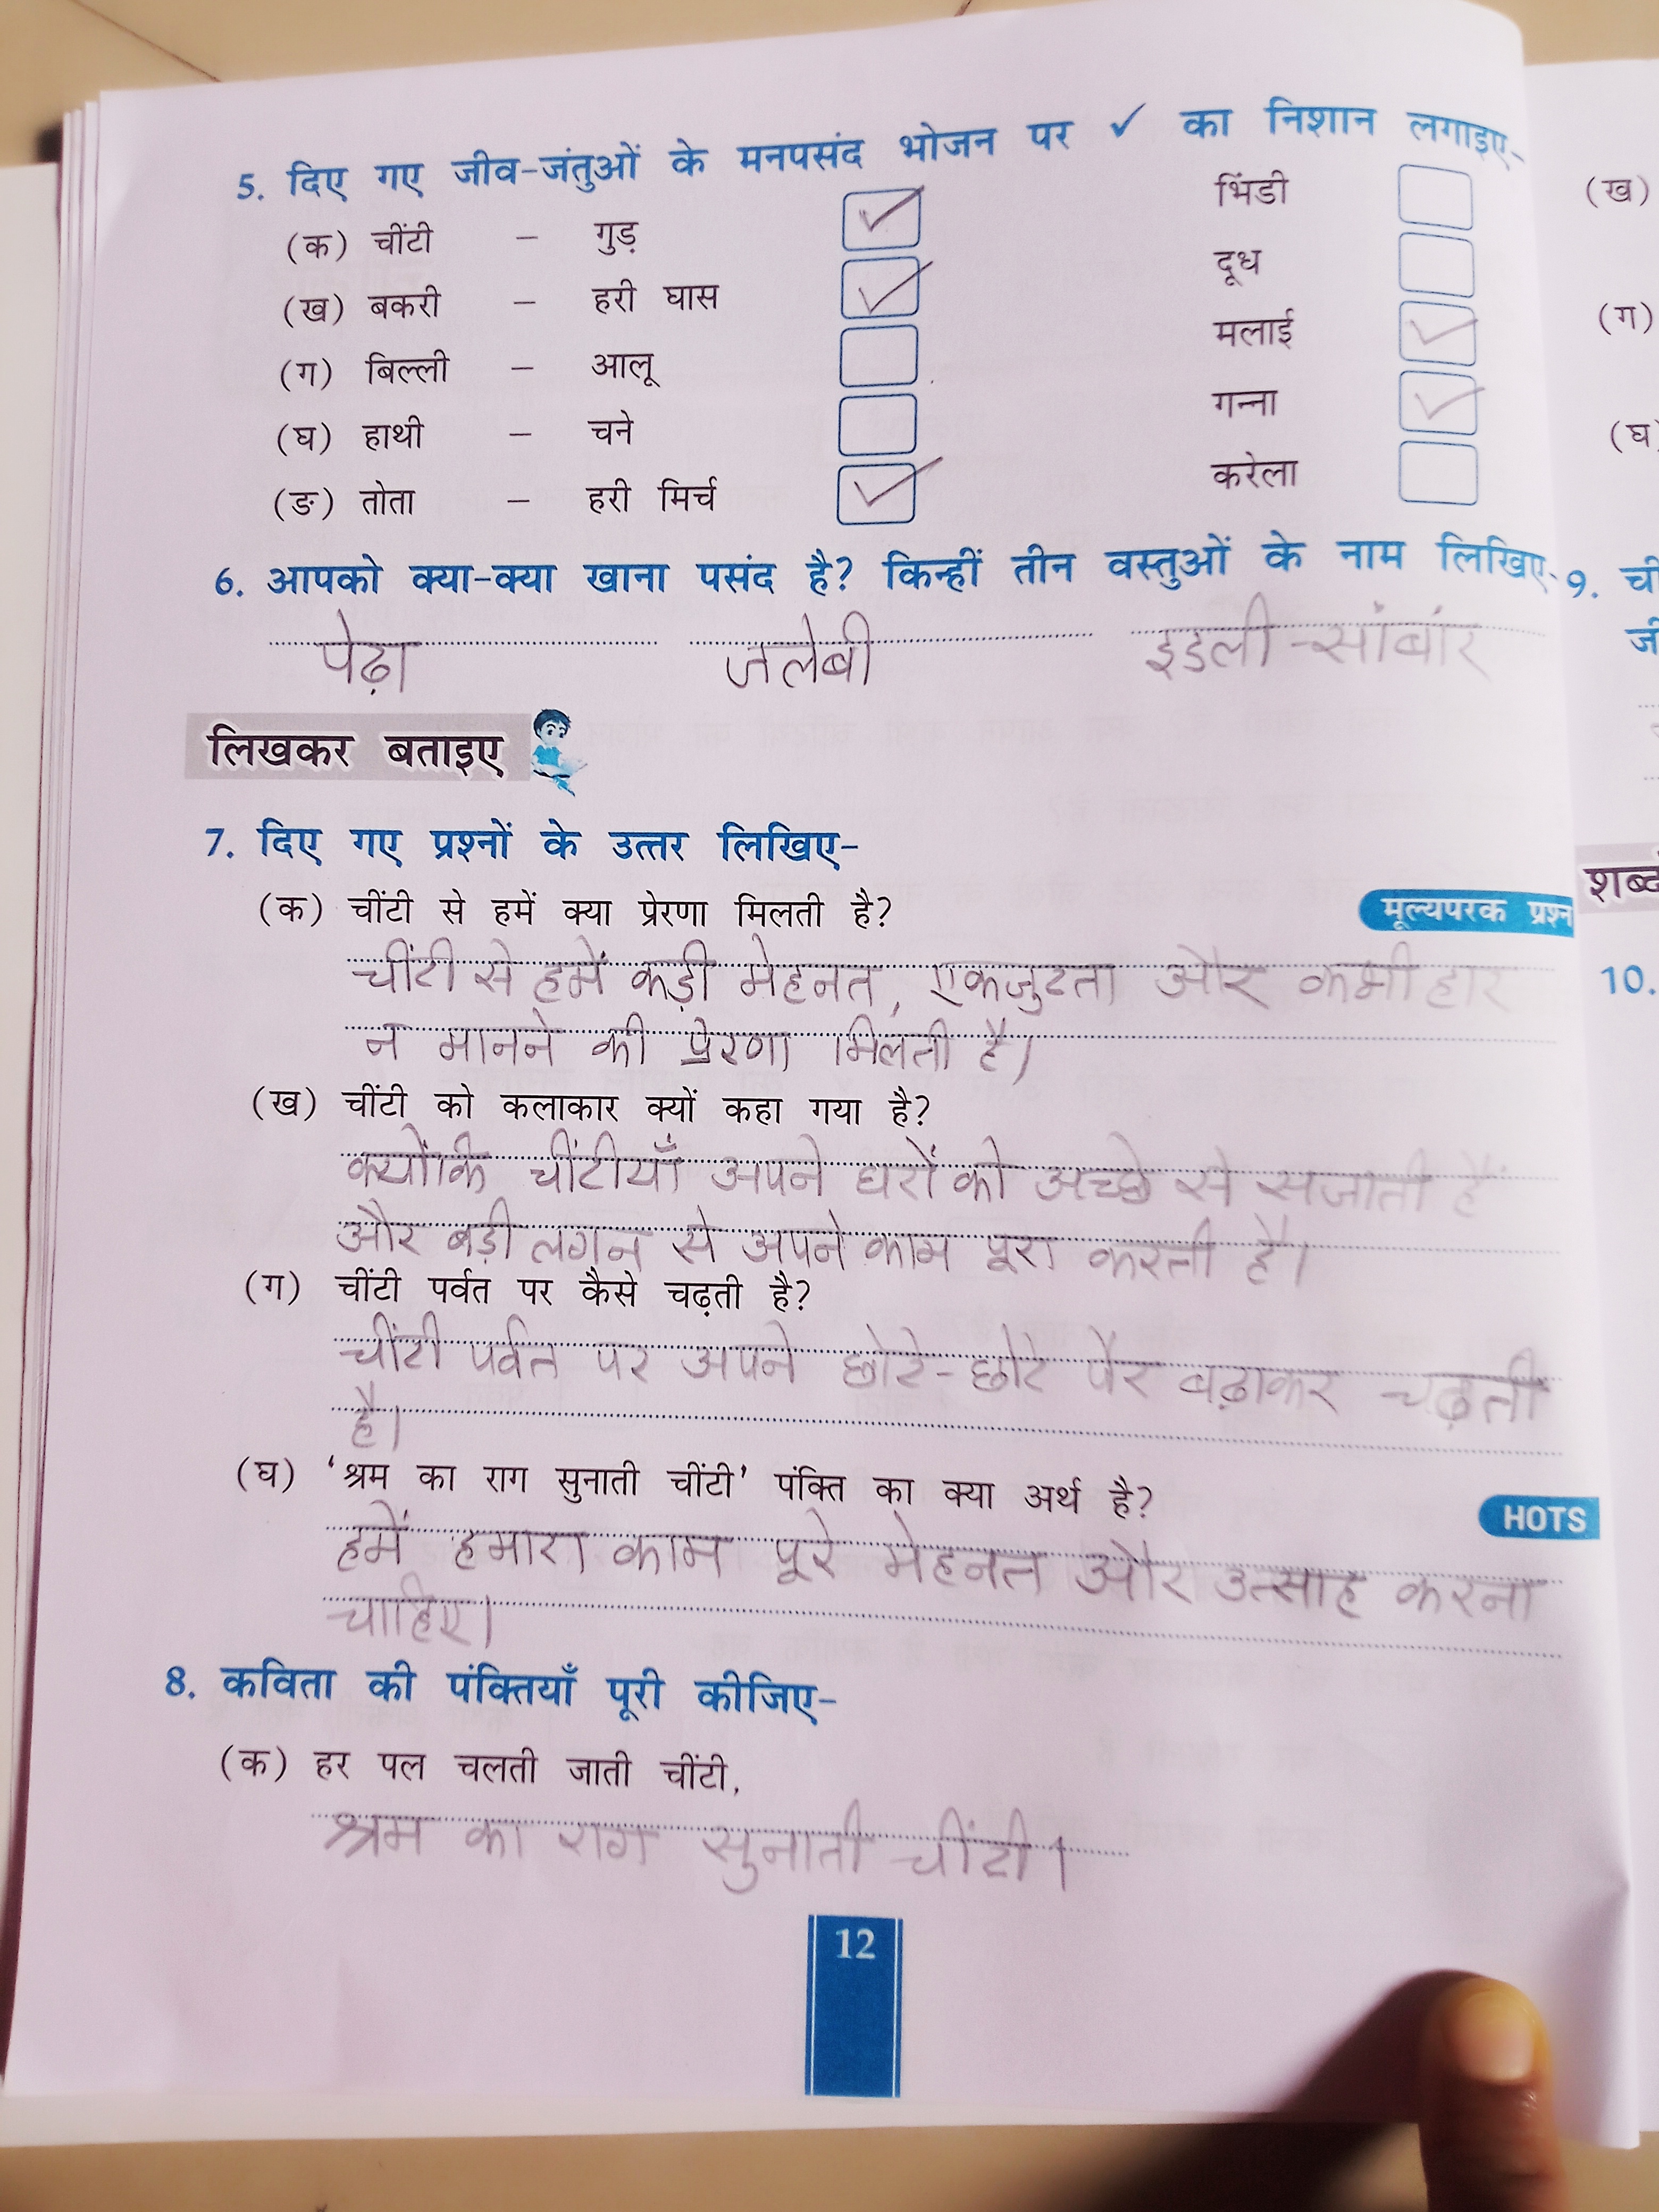 5. दिए गए जीव-जंतुओं के मनपसंद भोजन पर ✓ का निशान लगाइए-
(क) चींटी – गुड़ ✓ भिंडी
(ख) बकरी – हरी घास ✓ दूध
(ग) बिल्ली – आलू मलाई ✓
(घ) हाथी – चने गन्ना ✓
(ङ) तोता – हरी मिर्च ✓ करेला
6. आपको क्या-क्या खाना पसंद है? किन्हीं तीन वस्तुओं के नाम लिखिए-
पेढ़ा जलेबी इडली-सांबांर
लिखकर बताइए
7. दिए गए प्रश्नों के उत्तर लिखिए-
(क) चींटी से हमें क्या प्रेरणा मिलती है?
मूल्यपरक प्रश्न
चींटी से हमें कड़ी मेहनत, एकजुटता और कभी हार
न मानने की प्रेरणा मिलती है।
(ख) चींटी को कलाकार क्यों कहा गया है?
क्योंकि चींटीयाँ अपने घरों को अच्छे से सजाती हैं
और बड़ी लगन से अपने काम पूरा करती है।
(ग) चींटी पर्वत पर कैसे चढ़ती है?
चींटी पर्वत पर अपने छोटे-छोटे पैर बढ़ाकर चढ़ती
है।
(घ) ‘श्रम का राग सुनाती चींटी’ पंक्ति का क्या अर्थ है?
HOTS
हमें हमारा काम पूरे मेहनत और उत्साह करना
चाहिए।
8. कविता की पंक्तियाँ पूरी कीजिए-
(क) हर पल चलती जाती चींटी,
श्रम का राग सुनाती चींटी।
12
(ख)
(ग)
(घ)
9. ची
जी
शब्द
10.